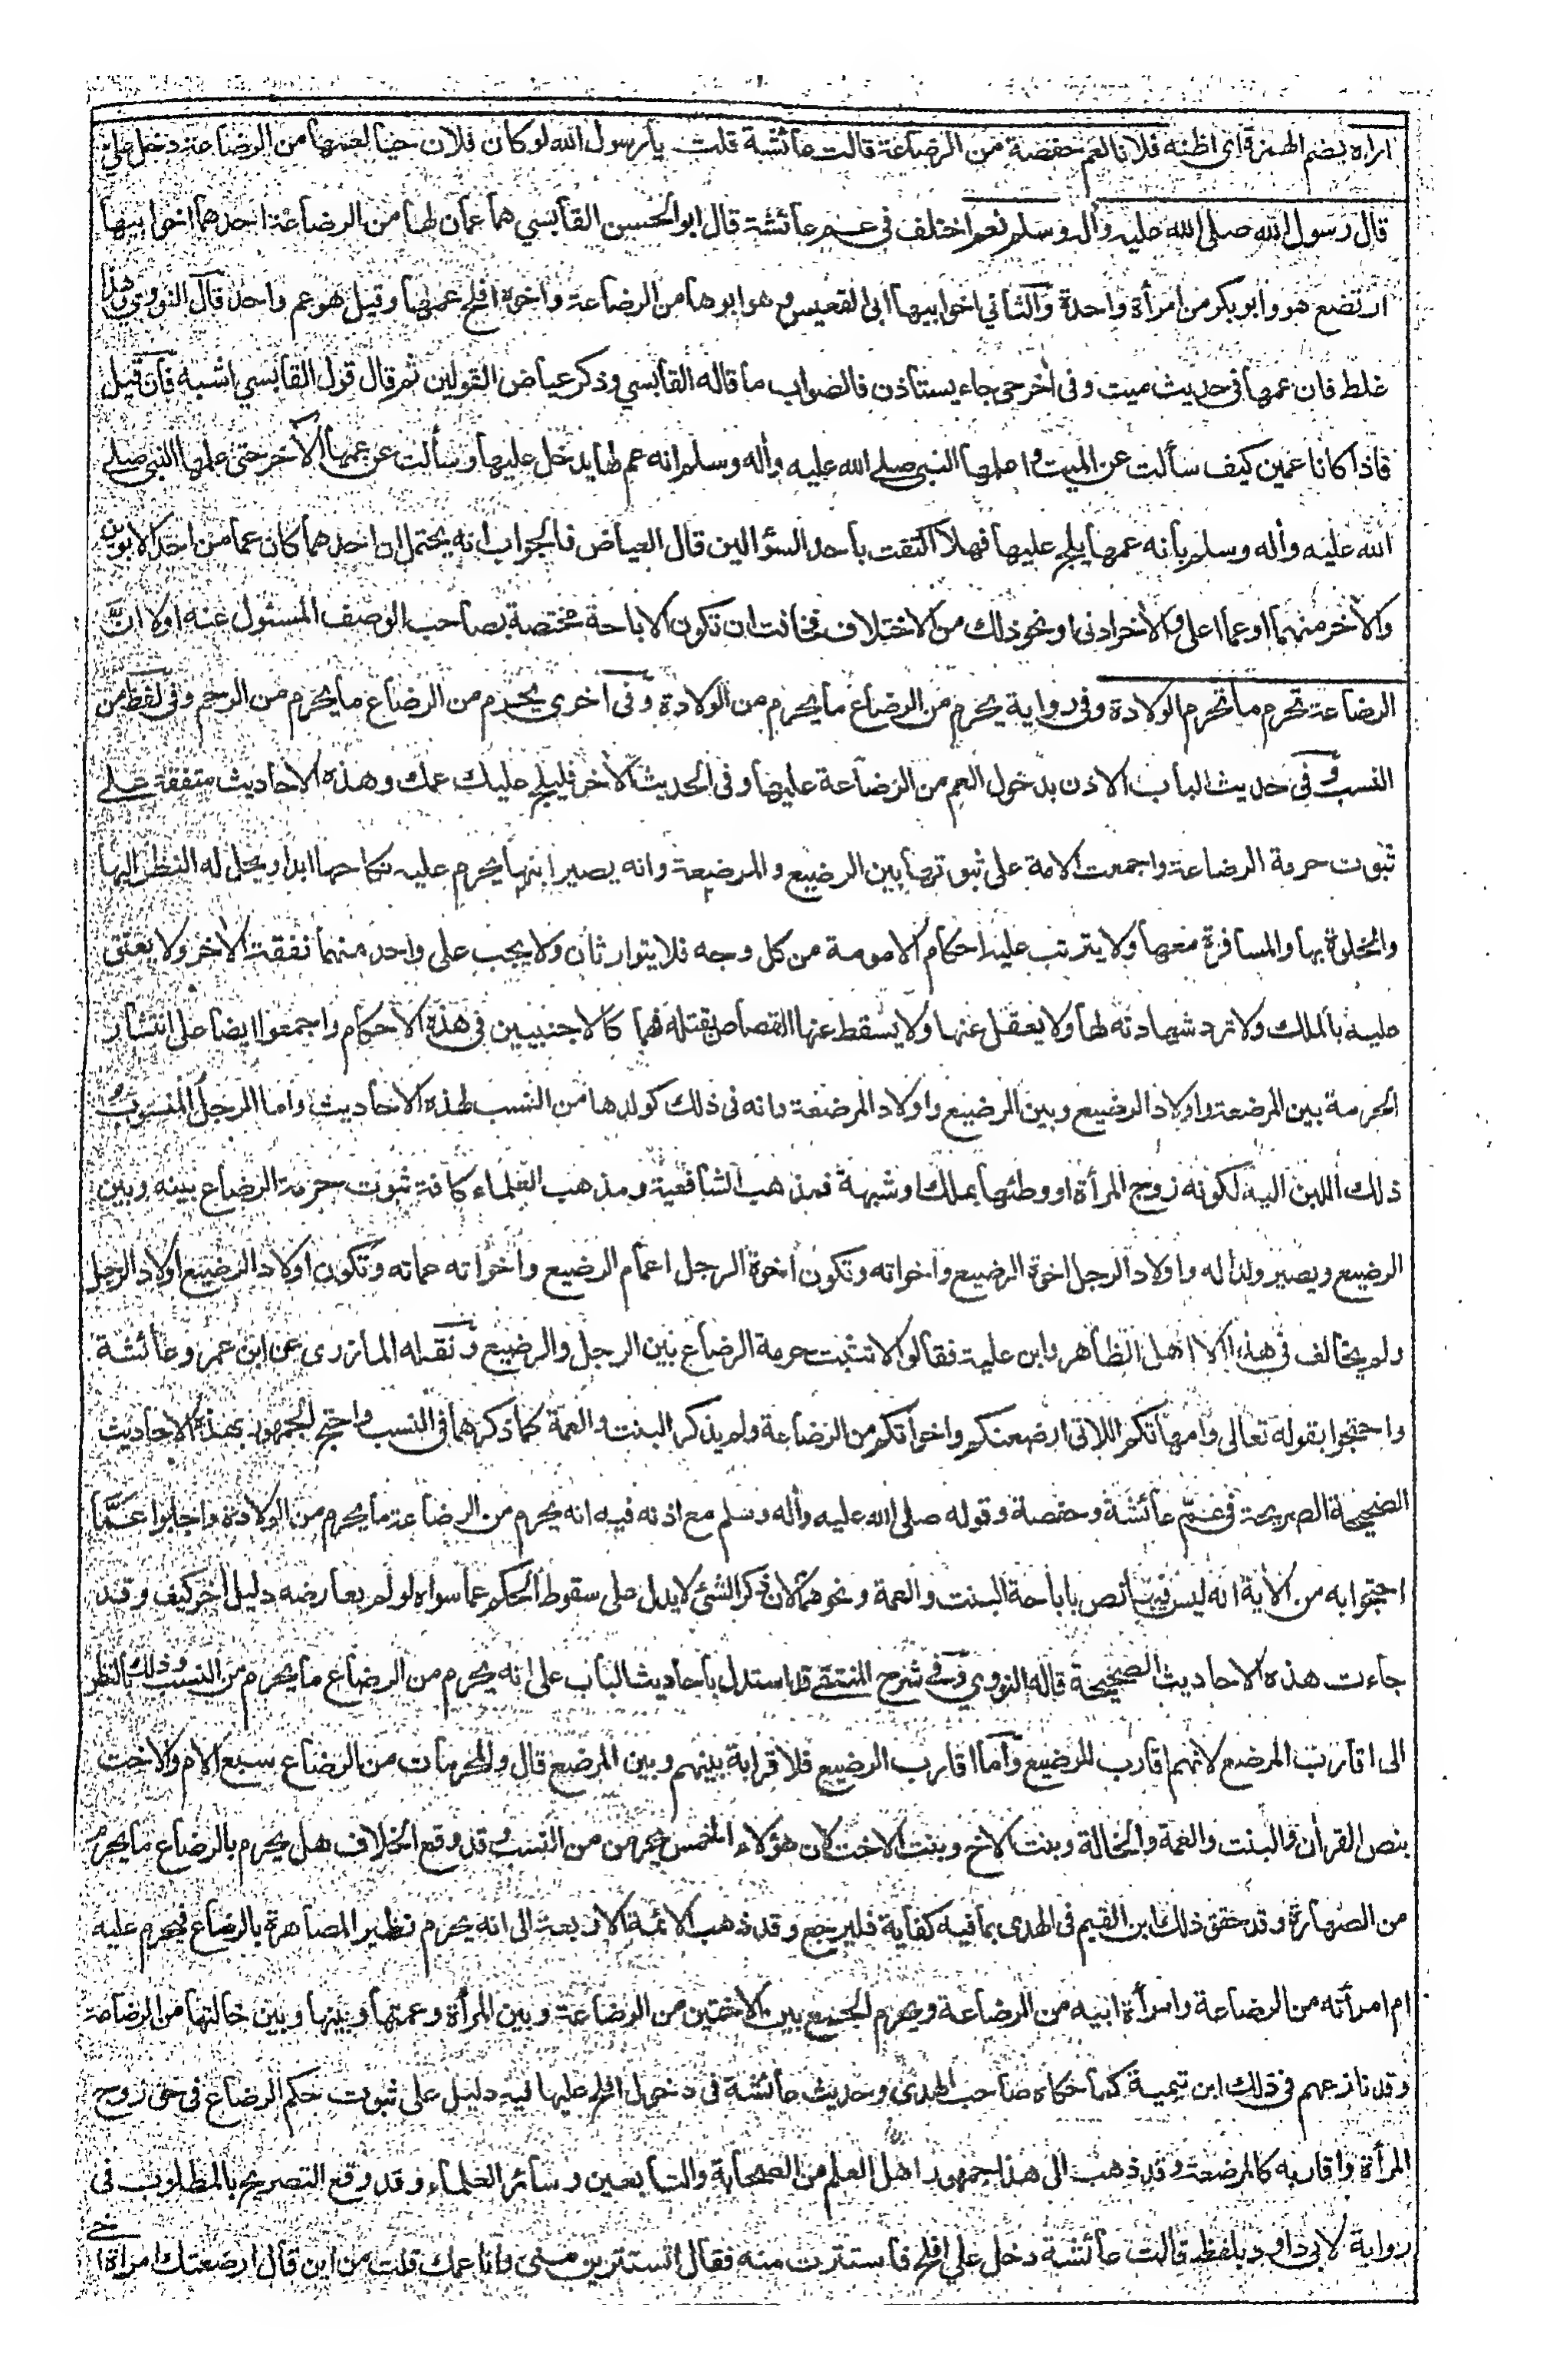 اراه بضم الهمزة اى اظنه فلانا لعم حفصة من الرضاعة قالت عائشة قلت يا رسول الله لو كان فلان حيا لعمها من الرضاعة دخل علىّ
قال رسول الله صلى الله عليه وأله وسلم نعم اختلف فى عم عائشة قال ابو الحسين القابسي هما عمان لها من الرضاعة احدهما اخو ابيها
ارتضع هو وابو بكر من امرأة واحدة والثانى اخو ابيها ابى القعيس وهو ابوها من الرضاعة واخوه افلح عمها وقيل هو عم واحد قال النووي وهذا
غلط فان عمها فى حديث ميت وفى أخر حى جاء يستاذن فالصواب ما قاله القابسي وذكر عياض القولين ثم قال قول القابسي اشبه فان قيل
فاذا كانا عمين كيف سألت عن الميت واعلمها النبى صلے الله عليه وأله وسلم انه عم لها يدخل عليها وسألت عن عمها الأخر حتى علمها النبى صلے
الله عليه وأله وسلم بأنه عمها يلج عليها فهلا اكتفت بأحد السؤالين قال العياض فالجواب انه يحتمل ان احدهما كان عما من احد الابوين
والأخر منهما او عما اعلى والأخر ادنى او نحو ذلك من الاختلاف فخافت ان تكون الاباحة مختصة بصاحب الوصف المسئول عنه اولا انَّ
الرضاعة تحرم ما تحرم الولادة وفى رواية يحرم من الرضاع ما يحرم من الولادة وفى أخرى يحرم من الرضاع ما يحرم من الرحم وفى لفظ من
النسب وفى حديث الباب الاذن بدخول العم من الرضاعة عليها وفى الحديث الأخر فليلج عليك عمك وهذه الاحاديث متفقة علے
ثبوت حرمة الرضاعة واجمعت الامة على ثبوتها بين الرضيع والمرضعة وانه يصير ابنها يحرم عليه نكاحها ابدا ويحل له النظر اليها
والخلوة بها والمسافرة معها ولا يترتب عليه احكام الامومة من كل وجه فلا يتوارثان ولا يجب على واحد منهما نفقة الأخر ولا يعتق
عليه بالملك ولا ترد شهادته لها ولا يعقل عنها ولا يسقط عنها القصاص بقتله فهما كالاجنبيين فى هذه الاحكام واجمعوا ايضا على انتشار
الحرمة بين المرضعة واولاد الرضيع وبين الرضيع واولاد المرضعة وانه فى ذلك كولدها من النسب لهذه الاحاديث واما الرجل المنسوب
ذلك اللبن اليه لكونه زوج المرأة او وطئها بملك او شبهة فمذهب الشافعية ومذهب العلماء كافة ثبوت حرمة الرضاع بينه وبين
الرضيع ويصير ولدا له واولاد الرجل اخوة الرضيع واخواته وتكون اخوة الرجل اعمام الرضيع واخواته عماته وتكون اولاد الرضيع اولاد الرجل
ولم يخالف فى هذا الا اهل الظاهر وابن علية فقالوا لا تثبت حرمة الرضاع بين الرجل والرضيع ونقله المازرى عن ابن عمر وعائشة
واحتجوا بقوله تعالى وامهاتكم اللاتى ارضعنكم واخواتكم من الرضاعة ولم يذكر البنت والعمة كما ذكرهما فى النسب واحتج الجمهور بهذه الاحاديث
الصحيحة الصريحة فى عمّ عائشة وحفصة وقوله صلى الله عليه وأله وسلم مع اذنه فيه انه يحرم من الرضاعة ما يحرم من الولادة واجابوا عمّا
احتجوا به من الأية انه ليس فيها نص باباحة البنت والعمة ونحوهما لان ذكر الشئ لا يدل على سقوط الحكم عما سواه لو لم يعارضه دليل أخر كيف وقد
جاءت هذه الاحاديث الصحيحة قاله النووي وفے شرح المنتقے قد استدل بأحاديث الباب على انه يحرم من الرضاع ما يحرم من النسب وذلك بالنظر
الى اقارب المرضع لانهم اقارب للرضيع واما اقارب الرضيع فلا قرابة بينهم وبين المرضع قال والمحرمات من الرضاع سبع الام والاخت
بنص القرأن والبنت والعمة والخالة وبنت الاخ وبنت الاخت لان هؤلاء الخمس يحرمن من النسب وقد وقع الخلاف هل يحرم بالرضاع ما يحرم
من الصهارة وقد حقق ذلك ابن القيم فى الهدى بما فيه كفاية فليرجع وقد ذهب الائمة الاربعة الى انه يحرم نظير المصاهرة بالرضاع فيحرم عليه
ام امرأته من الرضاعة وامرأة ابيه من الرضاعة ويحرم الجمع بين الاختين من الرضاعة وبين المرأة وعمتها وبينها وبين خالتها من الرضاعة
وقد نازعهم فى ذلك ابن تيمية كما حكاه صاحب الهدى وحديث عائشة فى دخول افلح عليها فيه دليل على ثبوت حكم الرضاع فى حق زوج
المرأة واقاربه كالمرضعة وقد ذهب الى هذا جمهور اهل العلم من الصحابة والتابعين وسائر العلماء وقد وقع التصريح بالمطلوب فى
رواية لابى داود بلفظ قالت عائشة دخل علي افلح فاستترت منه فقال اتستترين منى وانا عمك قلت من اين قال ارضعتك امرأة اخى